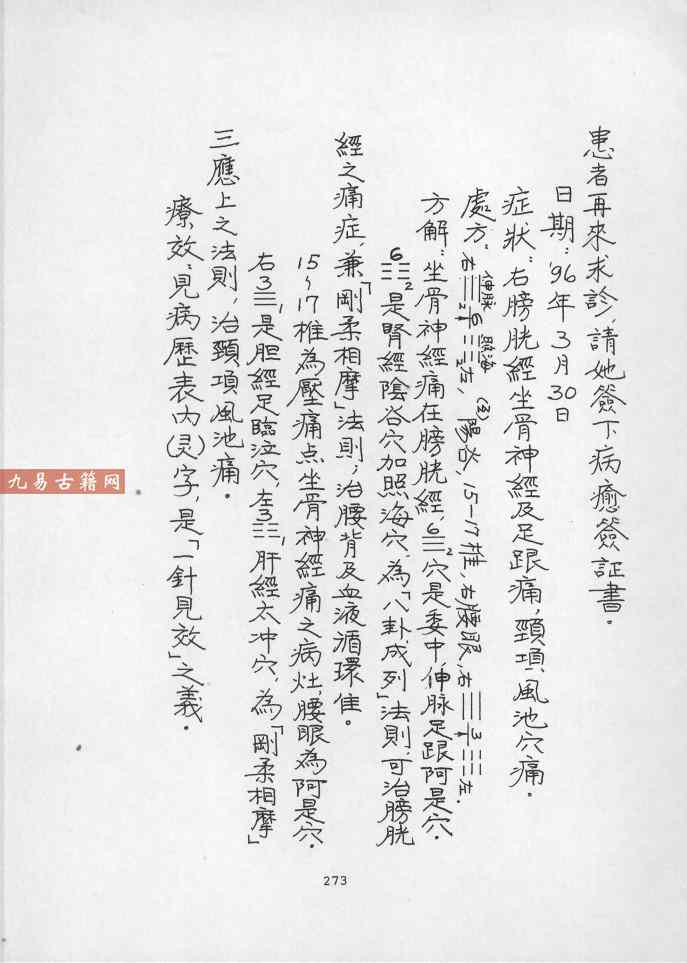 患者再來求診,請她簽下病癒簽証書。
日期:'96年3月30日
症狀:右膀胱經坐骨神經及足跟痛,頸項風池穴痛。
處方:右 伸脉 2 6 照海 2 左、(左)陽谷、15-17椎、右腰眼、右 3 左.
方解:坐骨神經痛在膀胱經,6☰2穴是委中,伸脉足跟阿是穴.
6☷2是腎經陰谷穴加照海穴,為「八卦成列」法則,可治膀胱
經之痛症,兼「剛柔相摩」法則,治腰背及血液循環佳。
15~17椎為壓痛点坐骨神經痛之病灶,腰眼為阿是穴.
右3 1是胆經足臨泣穴,左3 1肝經太冲穴,為「剛柔相摩」
三應上之法則,治頸項風池痛.
療效:見病歷表內(灵)字,是「一針見效」之義.
九易古籍网
273